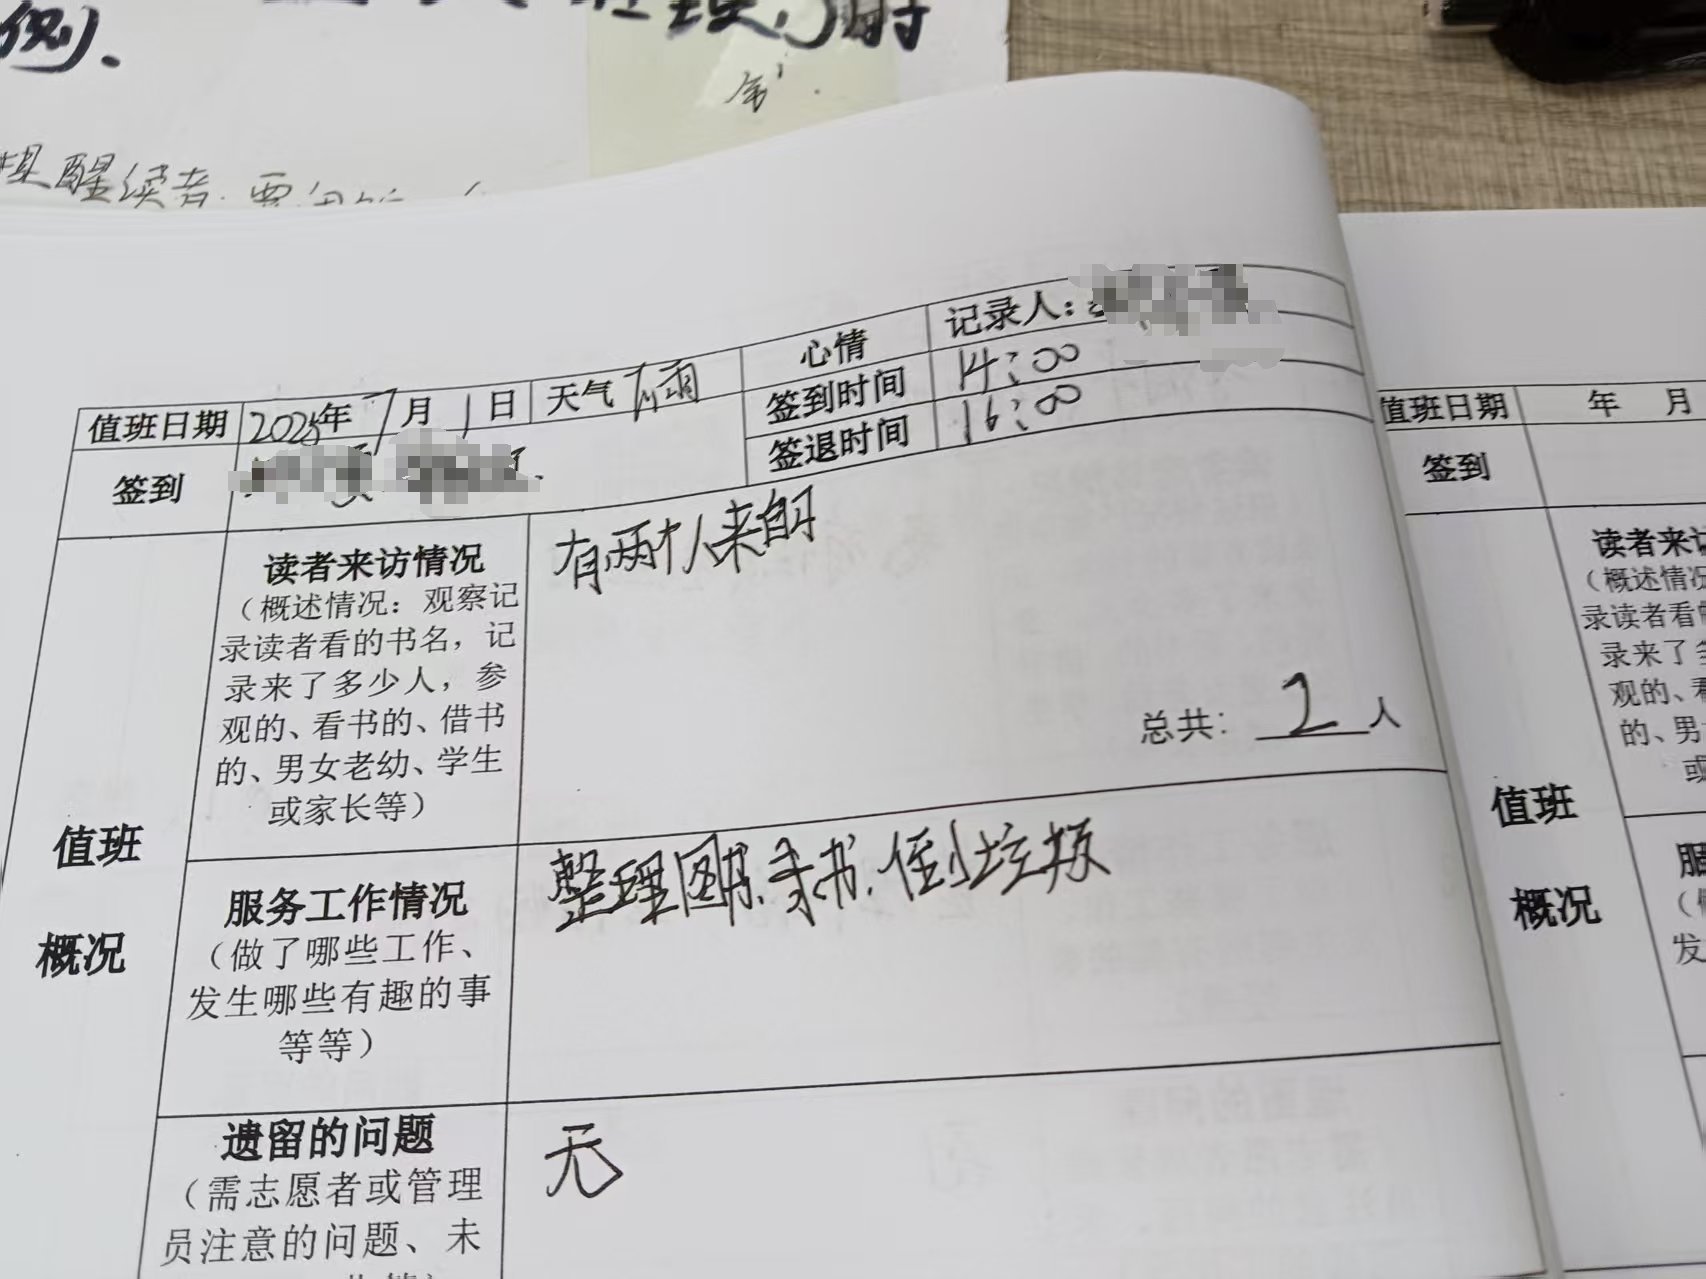 例.
提醒读者.
心情
记录人:
值班日期 2025年 7月 1日 天气 雨
签到时间 14:00
签到
签退时间 16:00
读者来访情况
(概述情况:观察记
录读者看的书名,记
录来了多少人,参
观的、看书的、借书
的、男女老幼、学生
或家长等)
有两个人来自习
总共: 2 人
值班
概况
服务工作情况
(做了哪些工作、
发生哪些有趣的事
等等)
整理图书.
书.倒垃圾
遗留的问题
(需志愿者或管理
员注意的问题、未
无
值班日期 年 月
签到
读者来访
(概述情况
录读者看
录来了多
观的、看
的、男
或
值班
概况
服
发